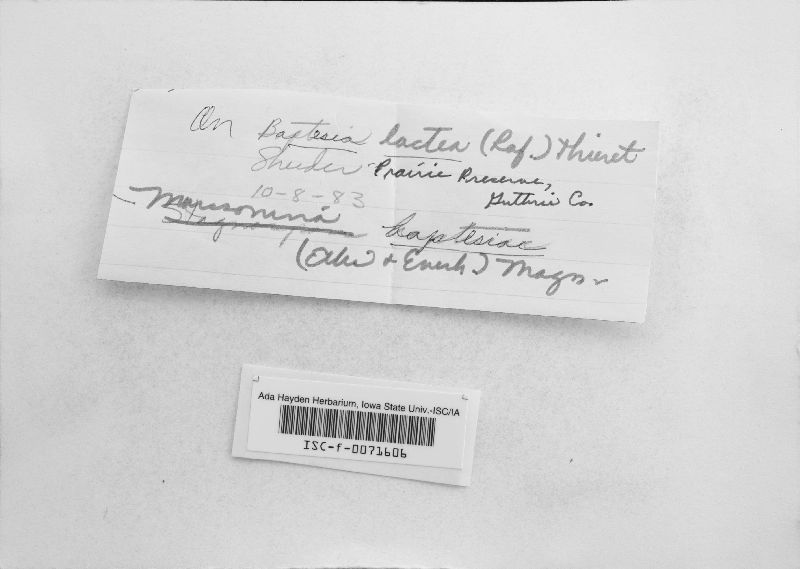 On Baptesia lactea (Raf.) Thieret
Sheeder Prairie Preserve,
Guthrie Co.
10-8-83
Marssonina baptesiae
(Ellis & Everh.) Magn.
Ada Hayden Herbarium, Iowa State Univ.-ISC/IA
ISC-f-0071606